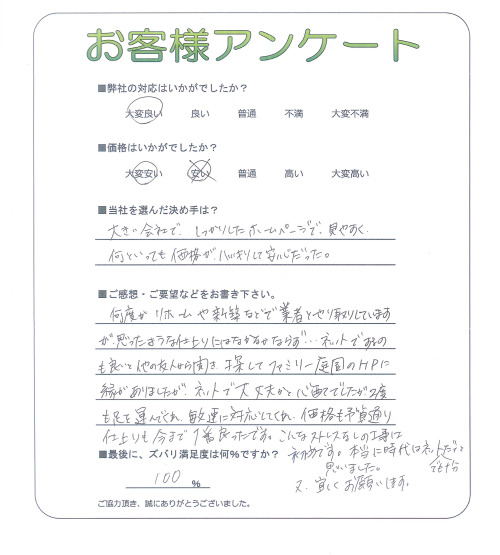 お客様アンケート
■弊社の対応はいかがでしたか?
大変良い 良い 普通 不満 大変不満
■価格はいかがでしたか?
大変安い 安い 普通 高い 大変高い
■当社を選んだ決め手は?
大きい会社で、しっかりしたホームページで、見やすく
何といっても価格がハッキリして安心だった。
■ご感想・ご要望などをお書き下さい。
何度かリホームや新築などで業者とやり取りしています
が、思ったような仕上りにはなかなかならず…ネットであるの
も良いと他の友人から聞き、探してファミリー庭園のHPに
縁がありましたが、ネットで大丈夫かと心配でしたが2度
も足を運んでくれ、敏速に対応してくれ、価格も予算通り
仕上りも今まで1番良かったです。こんなストレスなしの工事は
初めてです。本当に時代はネットだけで
でも十分
思いました。
又、宜しくお願います。
■最後に、ズバリ満足度は何%ですか?
100 %
ご協力頂き、誠にありがとうございました。